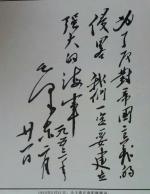 为了反对帝国主义的
侵略，我们一定要建立
强大的海军
毛泽东
一九五三年二月
廿一日